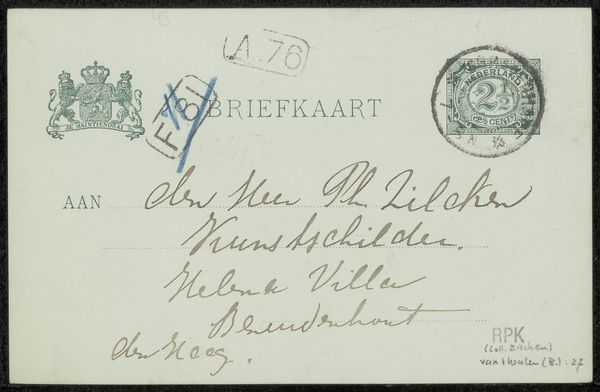 A.76
F 81
BRIEFKAART
JE MAINTIENDRAI
NEDERLAND
2½
CENTS
AAN den Heer Ph. Zilcken
Kunstschilder.
Helena Villa
Bezuidenhout
den Haag.
RPK
(Coll. Zilcken)
van Houten (B.) - 27